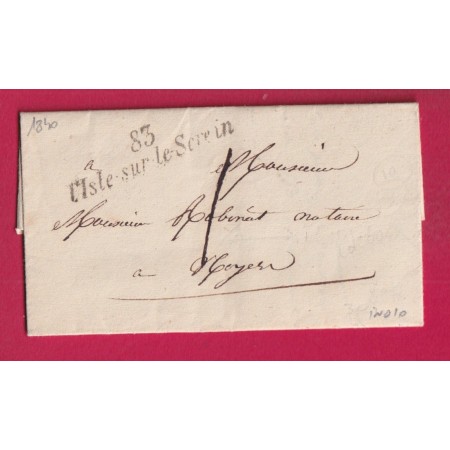 1830
83
l'Isle-sur-le-Serein
a Monsieur
Monsieur Robinét notaire
a Noyers
1
indio